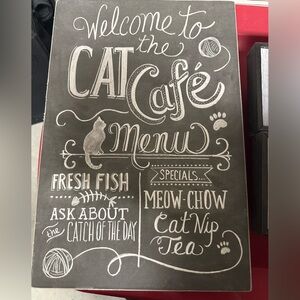 Welcome to
the
CAT Café
Menu
FRESH FISH
ASK ABOUT
the CATCH OF THE DAY
SPECIALS...
MEOW CHOW
Cat Nip
Tea